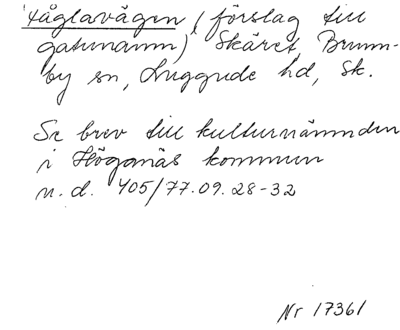 Fåglavägen (förslag till
gatunamn), Skäret, Brunn-
by sn, Luggude hd, Sk.
Se brev till kulturnämnden
i Höganäs kommun
n.d. 405/77.09.28-32
Nr 17361